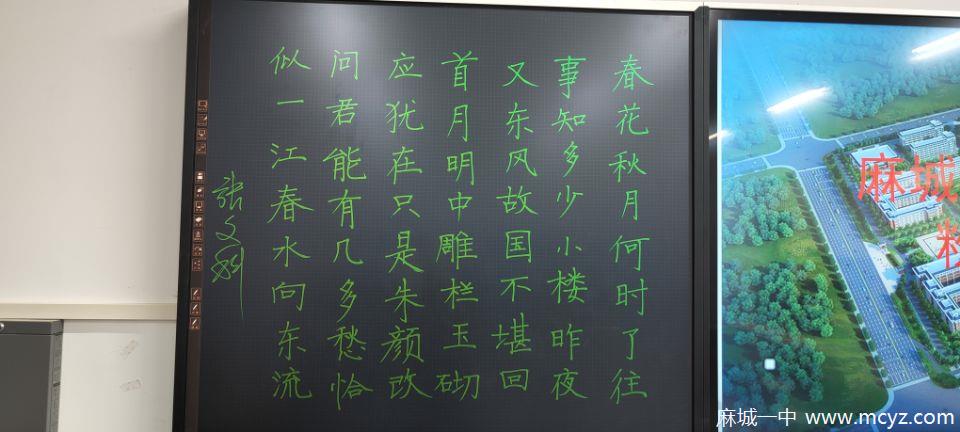 春花秋月何时了往
事知多少小楼昨夜
又东风故国不堪回
首月明中雕栏玉砌
应犹在只是朱颜改
问君能有几多愁恰
似一江春水向东流
麻城
麻城一中 www.mcyz.com